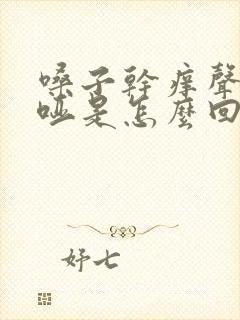 嗓子幹痒聲
啞是怎麼回
妤七